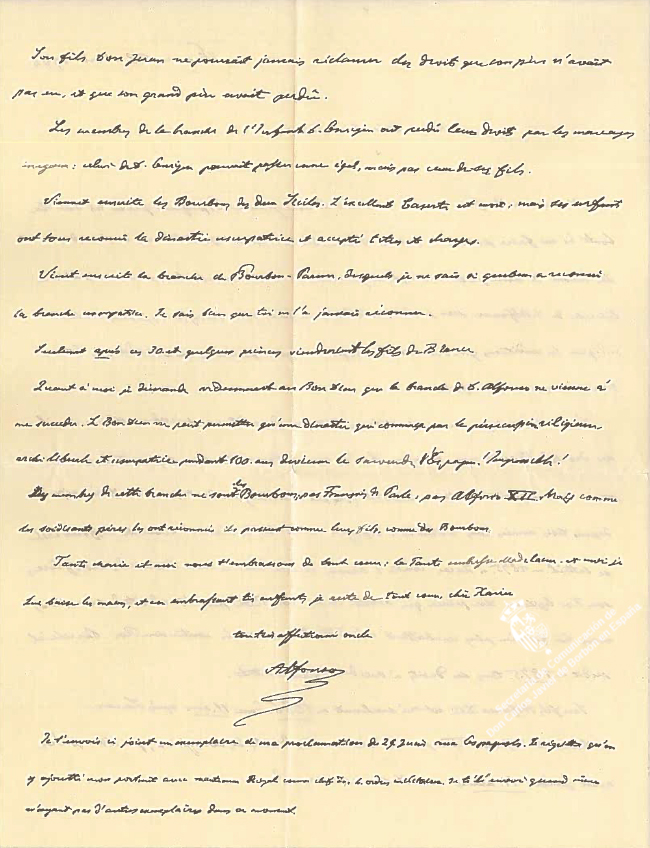 Son fils Don Juan ne pourrait jamais réclamer des droits que son père n'avait
pas eu, et que son grand père avait perdu.
Les membres de la branche de l'Infant D. Enrique ont perdu leurs droits par les mariages
inégaux: celui de D. Enrique pouvait passer comme égal, mais pas ceux de ses fils.
Viennent ensuite les Bourbons des deux Siciles. L'excellent Caserta est mort; mais ses enfants
ont tous reconnu la dinastie usurpatrice et accepté titres et charges.
Vient ensuite la branche de Bourbon-Parme, desquels je ne sais si quelqu'un a reconnu
la branche usurpatrice. Je sais bien que toi ne l'a jamais reconnue.
Seulement après ces 30 et quelques princes viendraient les fils de Blanca.
Quant à moi je demande au Bon Dieu que la branche de D. Alfonso ne vienne à
me succéder. Le Bon Dieu ne peut permettre qu'une dinastie qui commença par la persécution religieuse
archi libérale et usurpatrice pendant 100 ans devienne le d'Espagne! Impossible!
Les membres de cette branche ne sont des Bourbons, pas François de Paule, pas Alfonso XII. Mais comme
les soidisants pères les ont reconnus ils passent comme leurs fils, comme des Bourbons.
Tante Marie et moi nous t'embrassons de tout coeur; la Tante embrasse Madeleine et moi je
Lui baise les mains, et en embrassant tes enfants je reste de tout coeur, cher Xavier
ton très affectionné oncle
Alfonso
Je t'envois ci joint un exemplaire de ma proclamation du 29 Juin aux Espagnols. Je regrette qu'on
y ajoutât mon portrait avec
n'ayant pas d'autres exemplaires dans ce moment.
Secretaría de Comunicación de
Don Carlos Javier de Borbón en España